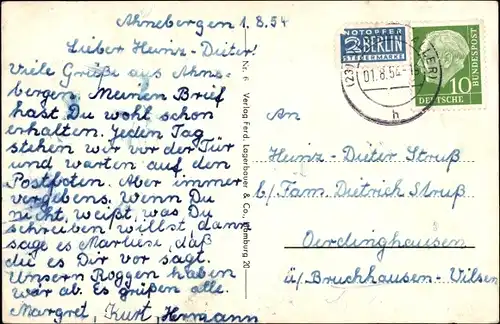 Ahnebergen 1.8.54
Lieber Heinz-Dieter!
Viele Grüße aus Ahne-
bergen. Meinen Brief
hast Du wohl schon
erhalten. Jeden Tag
stehen wir vor der Tür
und warten auf den
Postboten. Aber immer
vergebens. Wenn Du
nicht, weißt, was Du
schreiben willst, dann
sage es Marliese, daß
die es Dir vor sagt.
Unsern Roggen haben
wir ab. Es grüßen alle
Margret, Kurt, Hermann
Nr. 6 Verlag Ferd. Lagerbauer & Co., Hamburg 20
NOTOPFER
2 BERLIN
STEUERMARKE
(23)
01.8.54
h
10
DEUTSCHE
BUNDESPOST
An
Heinz-Dieter Struß
b/ Fam. Dietrich Struß
Oerdinghausen
ü/ Bruchhausen-Vilsen